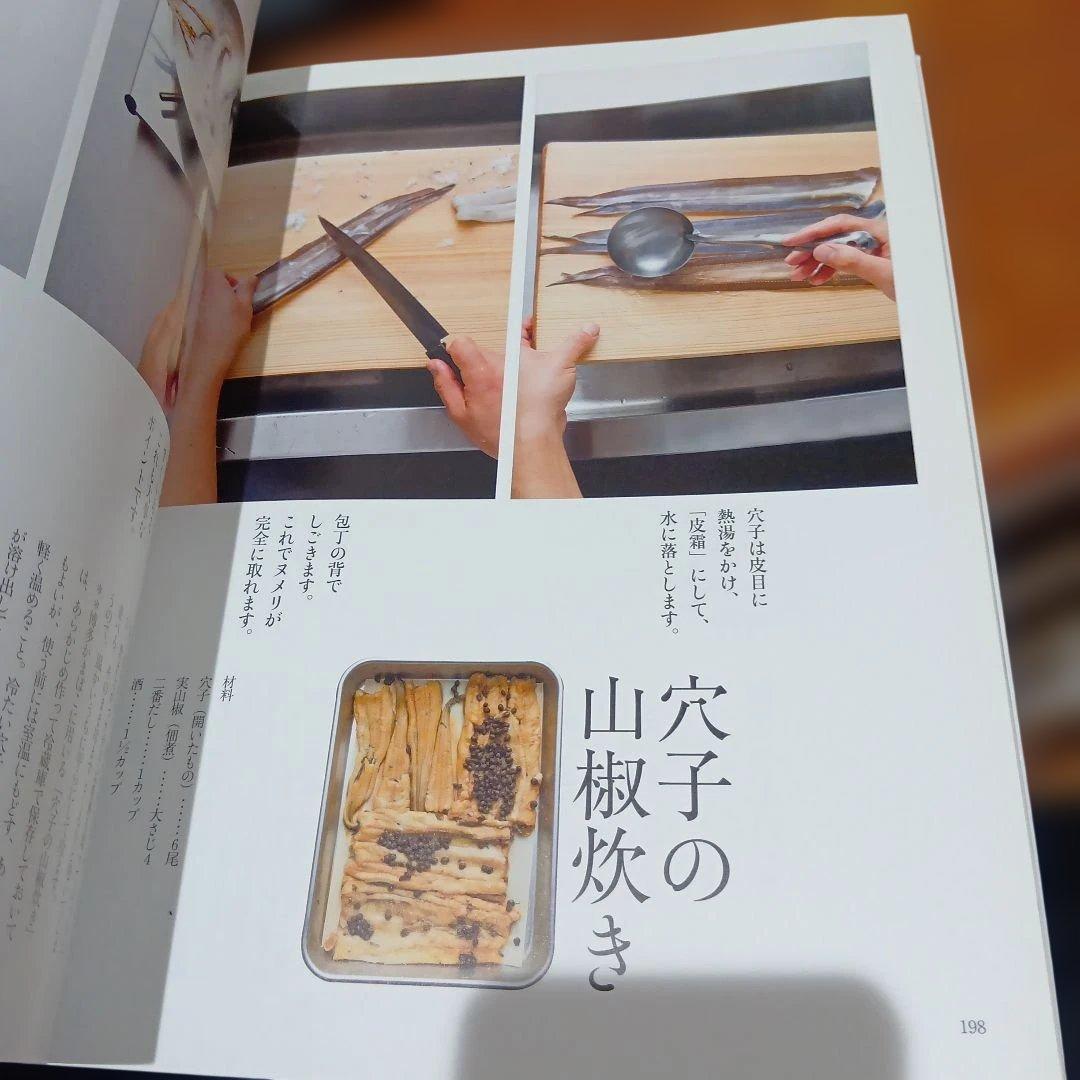 穴子は皮目に
熱湯をかけ、
「皮霜」にして、
水に落とします。
包丁の背で
しごきます。
これでヌメリが
完全に取れます。
穴子の
山椒炊き
材料
穴子(開いたもの)……6尾
実山椒(佃煮)……大さじ4
二番だし……1カップ
酒……1½カップ
ポイントです。
は、あらかじめ作って冷蔵庫で保存しておいて
もよいが、使う前には室温にもどす、
軽く温めること。冷たい
が溶け出し
198